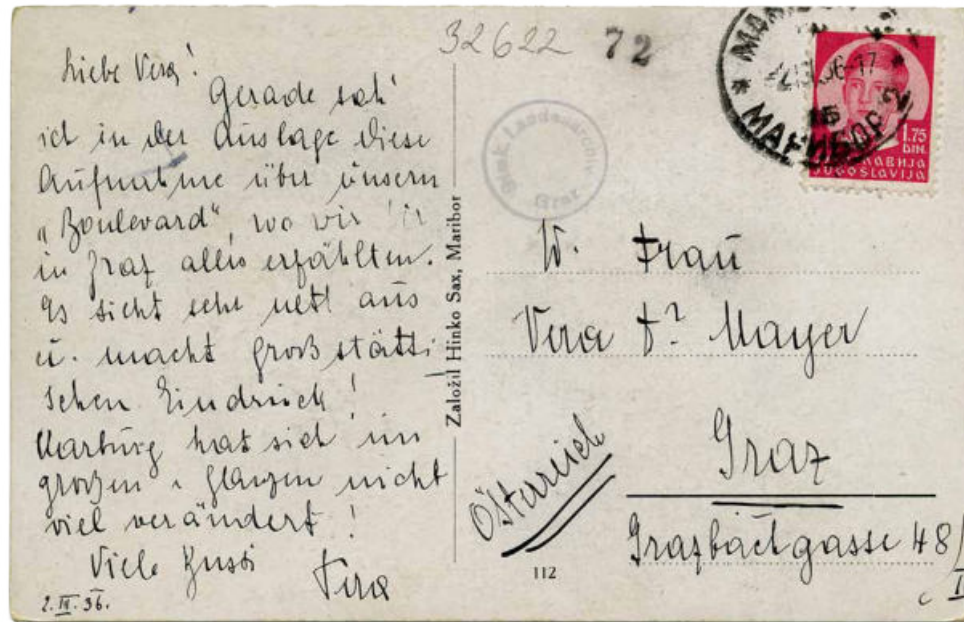 32622 72
Liebe Vera!
Gerade sah
ich in der Auslage diese
Aufnahme über unsern
„Boulevard“, wo wir Dir
in Graz alles erzählten.
Es sieht sehr nett aus
u. macht großstätti
schen Eindruck!
Marburg hat sich im
großen u. ganzen nicht
viel verändert!
Viele Bussi
Vera
2.IX.36.
Založil Hinko Sax, Maribor
112
Steierm. Landesarchiv
Graz
МАРИБОР 2
1.75
DIN.
ЈУГОСЛАВИЈА
JUGOSLAVIJA
W. Frau
Vera Dr Mayer
Graz
Österreich
Grazbachgasse 48/I